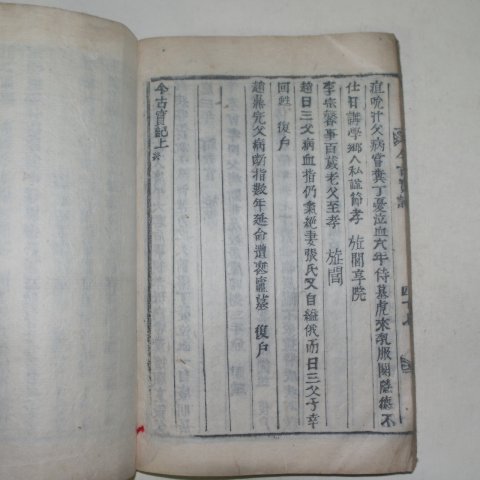 崔晩汁父病嘗糞丁憂泣血六年侍墓虎來乳服闋隱德不
仕日講學鄕人私諡節孝 旌閭享院
李宗馨事百歲老父至孝 旌閭
趙日三父病血指仍氣絶妻張氏又自縊俄而日三父子幸
回甦 復戶
趙鼎
父病斷指數年延命遭喪廬墓 復戶
今古實記上終
今古實記